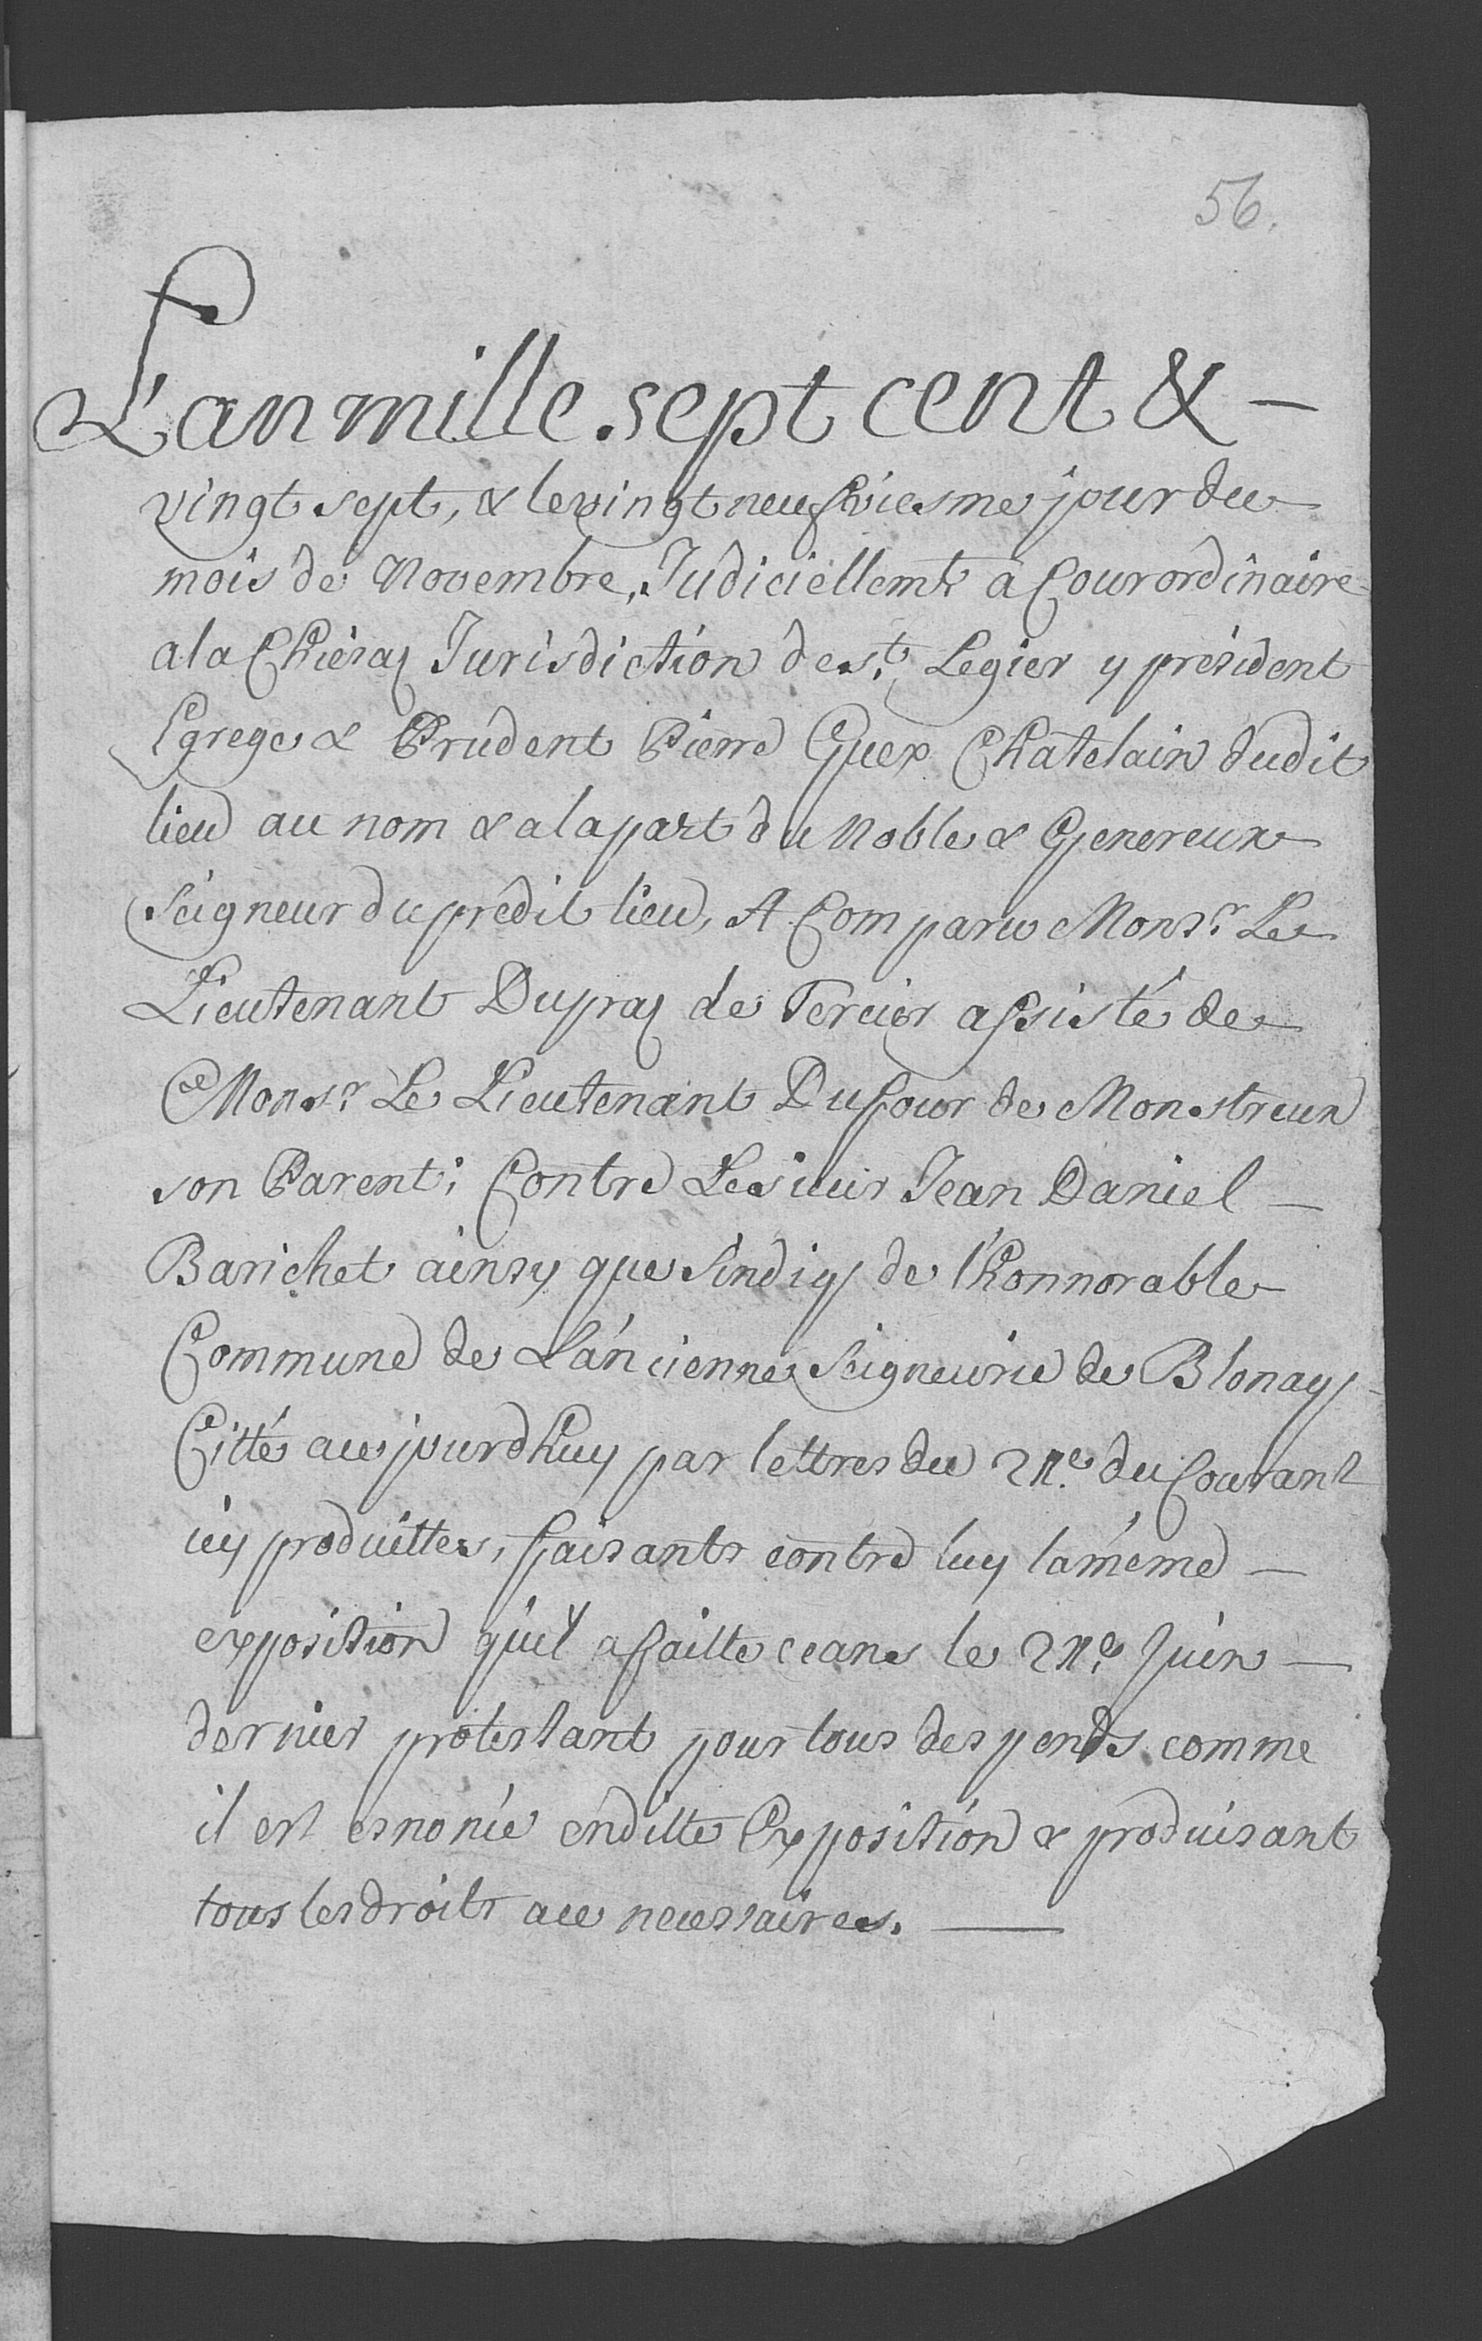 56.
L'an mille sept cent & —
vingt sept, & le vingt neufviesme jour du
mois de Novembre, Judiciellemt. a Cour ordinaire
a la Chiesaz Jurisdiction de st. Legier y président
Egrege & Prudent Pierre Guex Chatelain dudit
lieu au nom & a la part du Noble & Genereux
Seigneur du prédit lieu, A Comparu Monsr. Le
Lieutenant Dupraz de Tercier assisté de
Monsr. Le Lieutenant Dufour de Monstreux
son Parent; Contre Le sieur Jean Daniel —
Barichet ainsy que Sindiq de l'honnorable
Commune de L'ancienne Seigneurie de Blonay
Citté aujourd'huy par lettres du 21e. du Courant
icy produittes, faisants contre luy la même —
exposition qu'il a faitte ceans le 21e. Juin —
dernier protestant pour tous despends comme
il est en ditte Exposition & produisant
tous les droits au necessaires. —